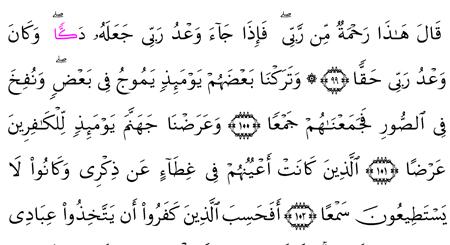 قَالَ هَٰذَا رَحْمَةٌ مِّن رَّبِّىۖ فَإِذَا جَآءَ وَعْدُ رَبِّى جَعَلَهُۥ دَكًّاۖ وَكَانَ
وَعْدُ رَبِّى حَقًّا ﴿٩٩﴾ ۞ وَتَرَكْنَا بَعْضَهُمْ يَوْمَئِذٍ يَمُوجُ فِى بَعْضٍۖ وَنُفِخَ
فِى ٱلصُّورِ فَجَمَعْنَٰهُمْ جَمْعًا ﴿١٠٠﴾ وَعَرَضْنَا جَهَنَّمَ يَوْمَئِذٍ لِّلْكَٰفِرِينَ
عَرْضًا ﴿١٠١﴾ ٱلَّذِينَ كَانَتْ أَعْيُنُهُمْ فِى غِطَآءٍ عَن ذِكْرِى وَكَانُوا۟ لَا
يَسْتَطِيعُونَ سَمْعًا ﴿١٠٢﴾ أَفَحَسِبَ ٱلَّذِينَ كَفَرُوٓا۟ أَن يَتَّخِذُوا۟ عِبَادِى